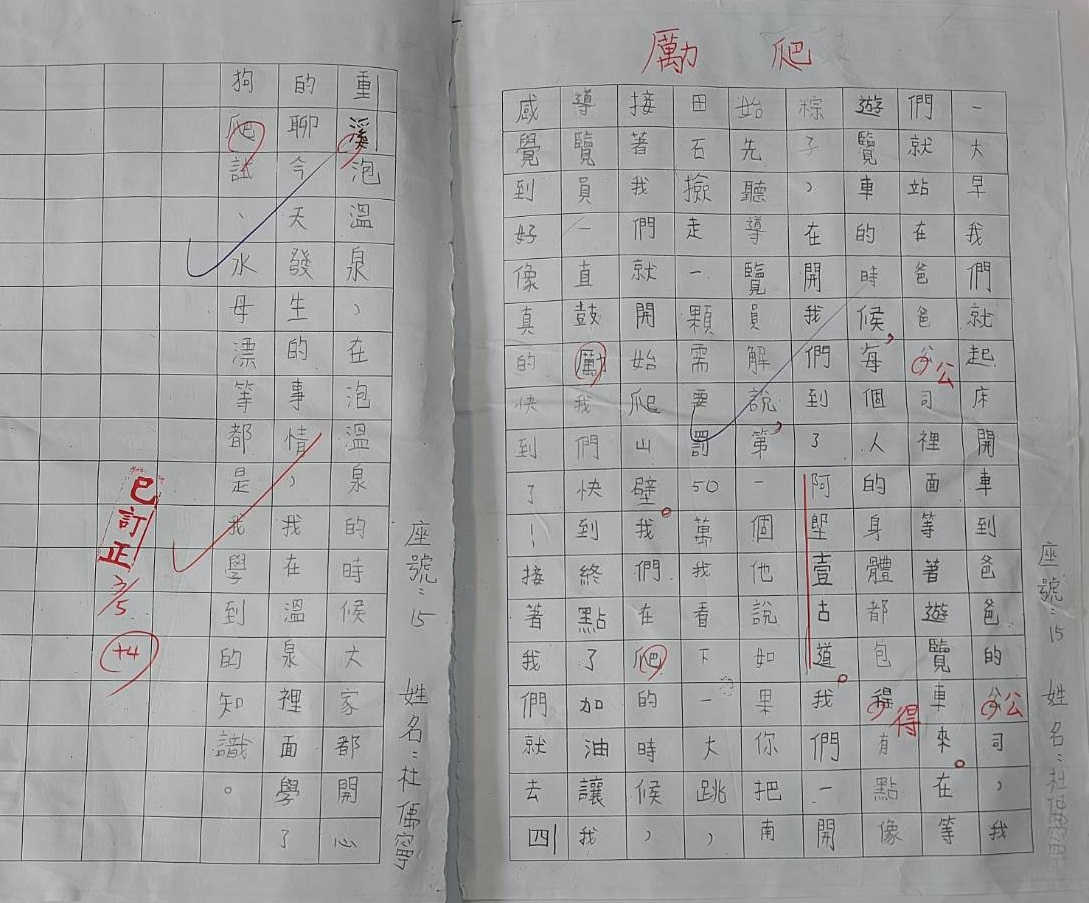 勵 爬
一大早我們就起床開車到爸爸的公司，我
們就站在爸爸公司裡面等著遊覽車來。在等
遊覽車的時候，每個人的身體都包得有點像
粽子，在開我們到了阿塱壹古道。我們一開
始先聽導覽員解說，第一個他說如果你把南
田石撿走一顆需要罰50萬我看下一大跳，
接著我們就開始爬山壁。我們在爬的時候，
導覽員一直鼓勵我們快到終點了加油讓我
感覺到好像真的快到了！接著我們就去四
座號：15 姓名：杜儒寧
重溪泡溫泉，在泡溫泉的時候大家都開心
的聊今天發生的事情，我在溫泉裡面學了
狗爬試、水母漂等都是我學到的知識。
座號：15 姓名：杜儒寧
已訂正
3/5
+4